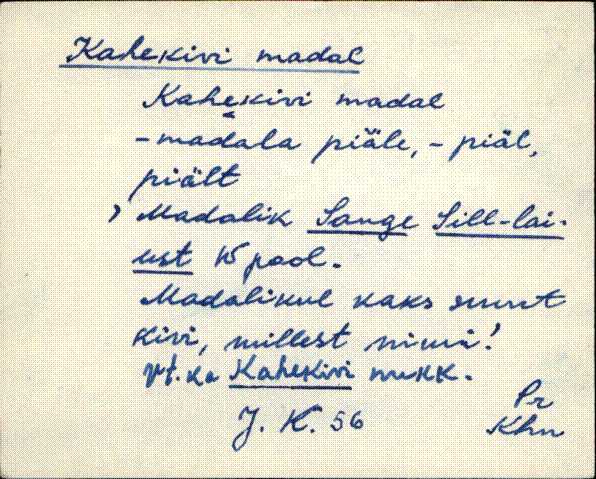 Kahekivi madal
Kahekivi madal
- madala piäle, - piäl,
piält
, Madalik Sange Sill-lai-
ust W pool.
Madalikul kaks suurt
kivi, millest nimi!
Vt. ka Kahekivi nukk.
J. K. 56
Pr
Khn